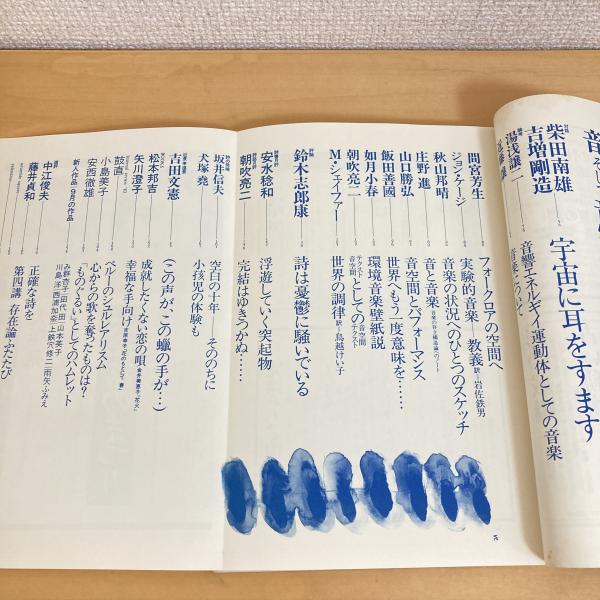 対話
柴田南雄
吉増剛造
宇宙に耳をすます
湯浅譲二
音響エネルギー運動体としての音楽
音楽について
間宮芳生 フォークロアの空間へ
ジョン・ケージ 実験的音楽―教義 訳・岩佐鉄男
秋山邦晴 音楽の状況へのひとつのスケッチ
庄野進 音と音楽
山口勝弘 音空間とパフォーマンス
飯田善國 世界へもう一度意味を……
如月小春 環境音楽壁紙説
朝吹亮二 テクストとしての音空間 音空間としてのテクスト
M・シェイファー 世界の調律 訳・鳥越けい子
評論
鈴木志郎康 詩は憂鬱に騒いでいる
安水稔和 浮遊していく突起物
朝吹亮二 完結はゆきつかぬ……
坂井信夫 空白の十年―そののちに
犬塚堯 小孩児の体験も
吉田文憲 (この声が、この蠟の手が…)
松本邦吉 成就したくない恋の唄
矢川澄子 幸福な手向け
鼓直 ペルーのシュルレアリスム
小島美子 心からの歌を奪ったものは?
安西徹雄 「ものぐるい」としてのハムレット
新人作品 9月の作品
中江俊夫 正確な詩を
藤井貞和 第四講 存在論ふたたび